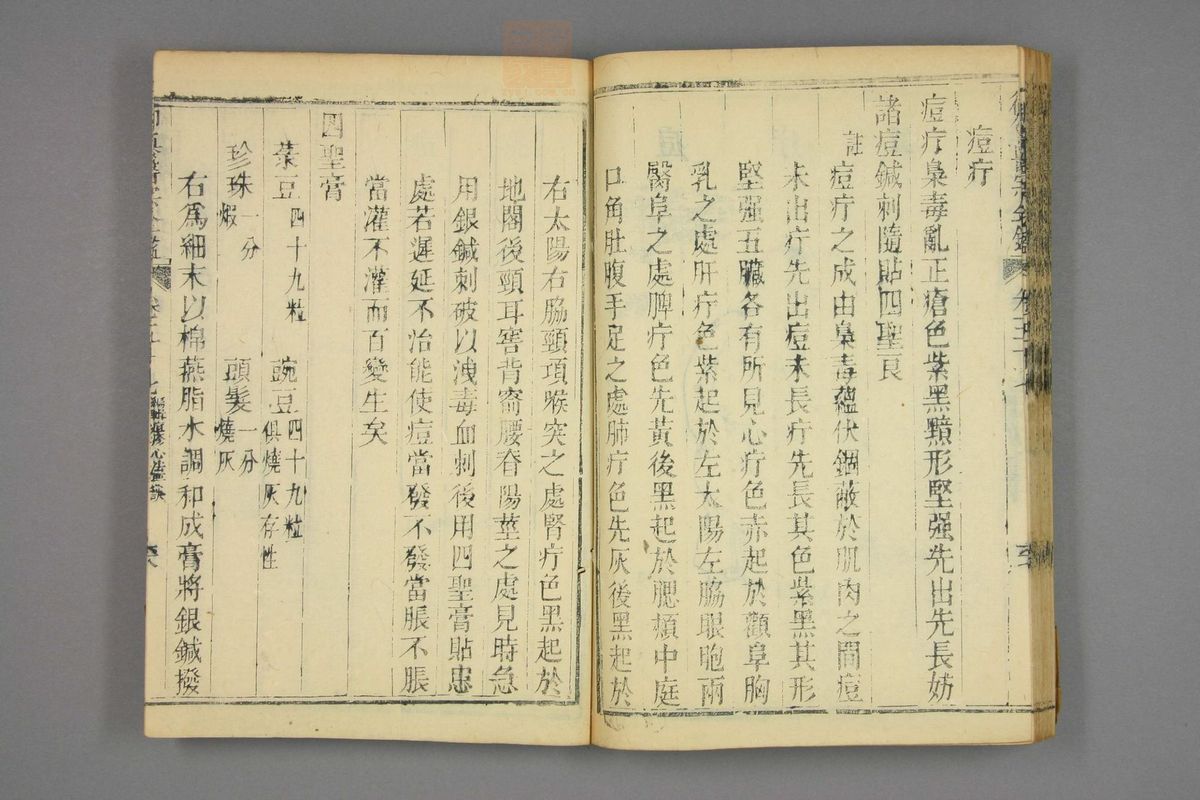 痘疔
痘疔梟毒亂正瘡色紫黑黯形堅强先出先長妨
諸痘鍼刺隨貼四聖良
註
痘疔之成由梟毒蘊伏錮蔽於肌肉之間痘
未出疔先出痘未長疔先長其色紫黑其形
堅强五臟各有所見心疔色赤起於顴阜胸
乳之處肝疔色紫起於左太陽左脇眼胞兩
醫阜之處脾疔色先黃後黑起於腮頰中庭
口角肚腹手足之處肺疔色先灰後黑起於
右太陽右脇頸項喉突之處腎疔色黑起於
地閣後頸耳窖背脊腰脊陽莖之處見時急
用銀鍼刺破以洩毒血刺後用四聖膏貼患
處若遲延不治能使痘當發不發當脹不脹
當灌不灌而百變生矣
四聖膏
菉豆四十九粒 豌豆四十九粒俱燒灰存性
珍珠一分煅 頭髮一分燒灰
右爲細末以棉燕脂水調和成膏將銀鍼撥